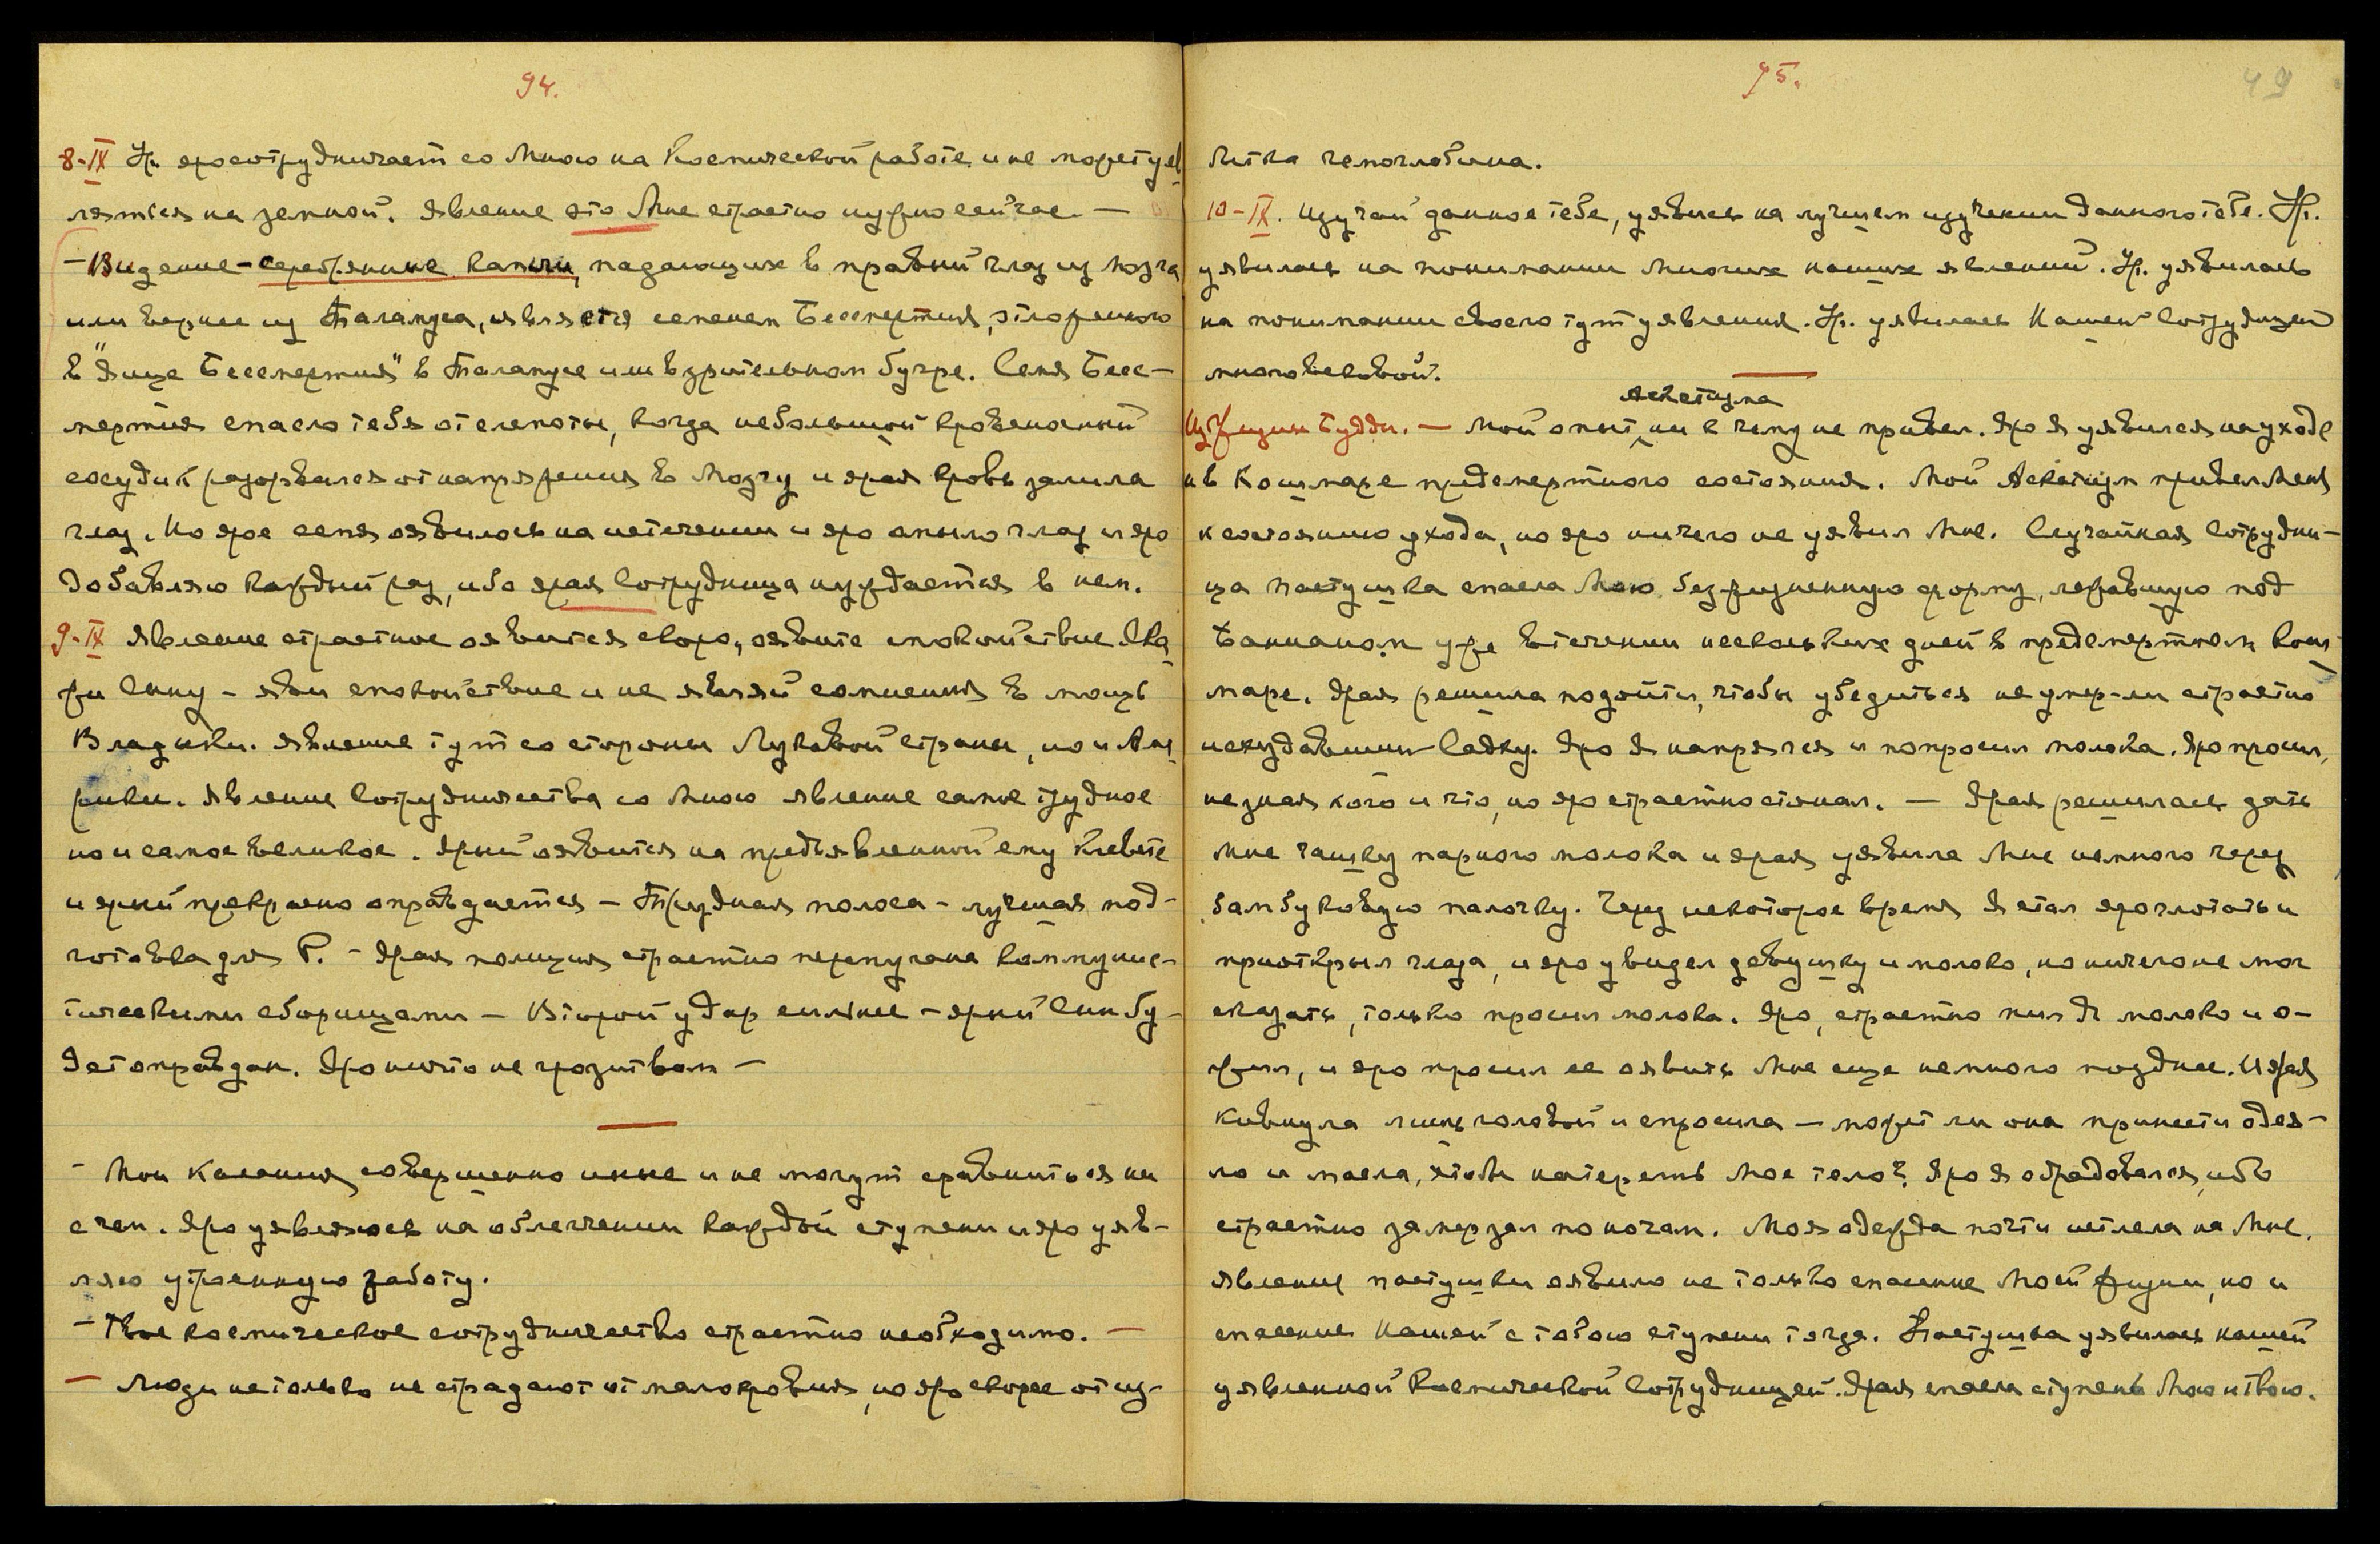 94.
8-IX Ур. яро сотрудничает со Мною на Космической работе и не может уяв-
ляться на земной. Явление это Мне страстно нужно сейчас. —
— Видение – серебрянные капли, падающих в правый глаз из мозга
или вернее из Таламуса, является семенем Бессмертия, отложенного
в "Яйце Бессмертия" в Таламусе или в зрительном бугре. Семя Бесс-
мертия спасло тебя от слепоты, когда небольшой кровеносный
сосудик разорвался от напряжения в мозгу и ярая кровь залила
глаз. Но ярое семя оявилось на истечении и яро омыло глаз и яро
добавляю каждый раз, ибо ярая Сотрудница нуждается в нем.
9-IX Явление страстное оявится скоро, оявите спокойствие. Ска-
жи Сыну – яви спокойствие и не являй сомнения в мощь
Владыки. Явление тут со стороны Луковой страны, но и Аме-
рики. Явление Сотрудничества со Мною явление самое трудное
но и самое великое. Ярый оявится на предъявленной ему клевете
и ярый прекрасно оправдается – Трудная полоса – лучшая под-
готовка для Р. – Ярая полиция страстно перепугана коммунис-
тическими сборищами – Второй удар сильнее – ярый Сын бу-
дет оправдан. Яро ничто не грозит вам —
– Мои касания совершенно иные и не могут сравниться ни
с чем. Яро уявляюсь на облегчении каждой ступени и яро уяв-
ляю утроенную заботу.
– Твое космическое сотрудничество страстно необходимо. —
— Люди не только не страдают от малокровия, но яро скорее от из-
95.
49
бытка гемоглобина.
10-IX. Изучай данное тебе, уявись на лучшем изучении данного тебе. Ур.
уявилась на понимании многих наших явлений. Ур. уявилась
на понимании своего тут уявления. Ур. уявилась Нашей Сотрудницей
многовековой.
аскетизма
Из жизни Будды. — Мой опыт ни к чему не привел. Яро Я уявился на уходе
и в Кошмаре предсмертного состояния. Мой Аскетизм привел Меня
к состоянию ухода, но яро ничего не уявил Мне. Случайная Сотрудни-
ца Пастушка спасла Мою безжизненную форму, лежавшую под
Банианом уже в течении нескольких дней в предсмертном кош-
маре. Ярая решила подойти, чтобы убедиться не умер-ли страстно
исхудавший Садху. Яро Я напрягся и попросил молока. Яро просил,
не зная кого и что, но яро страстно стонал. — Ярая решилась дать
Мне чашку парного молока и ярая уявила Мне немного через
бамбуковую палочку. Через некоторое время Я стал яро глотать и
приоткрыл глаза, и яро увидел девушку и молоко, но ничего не мог
сказать, только просил молока. Яро, страстно пил Я молоко и о-
жил, и яро просил ее оявить Мне еще немного позднее. И ярая
кивнула лишь головой и спросила — может ли она принести одея-
ло и масла, чтобы натереть Мое тело? Яро Я обрадовался, ибо
страстно замерзал по ночам. Моя одежда почти истлела на Мне.
Явление пастушки оявило не только спасение Моей жизни, но и
спасение Нашей с тобою ступени тогда. Пастушка уявилась нашей
уявленной Космической Сотрудницей. Ярая спасла ступень Мою и твою.